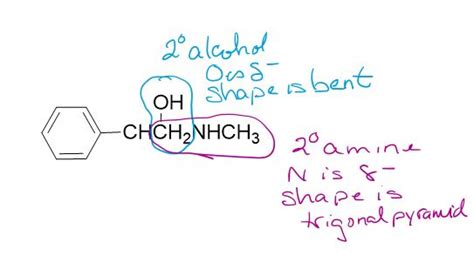 2° alcohol
O is δ-
shape is bent
OH
CHCH₂NHCH₃
2° amine
N is δ-
shape is
trigonal pyramid